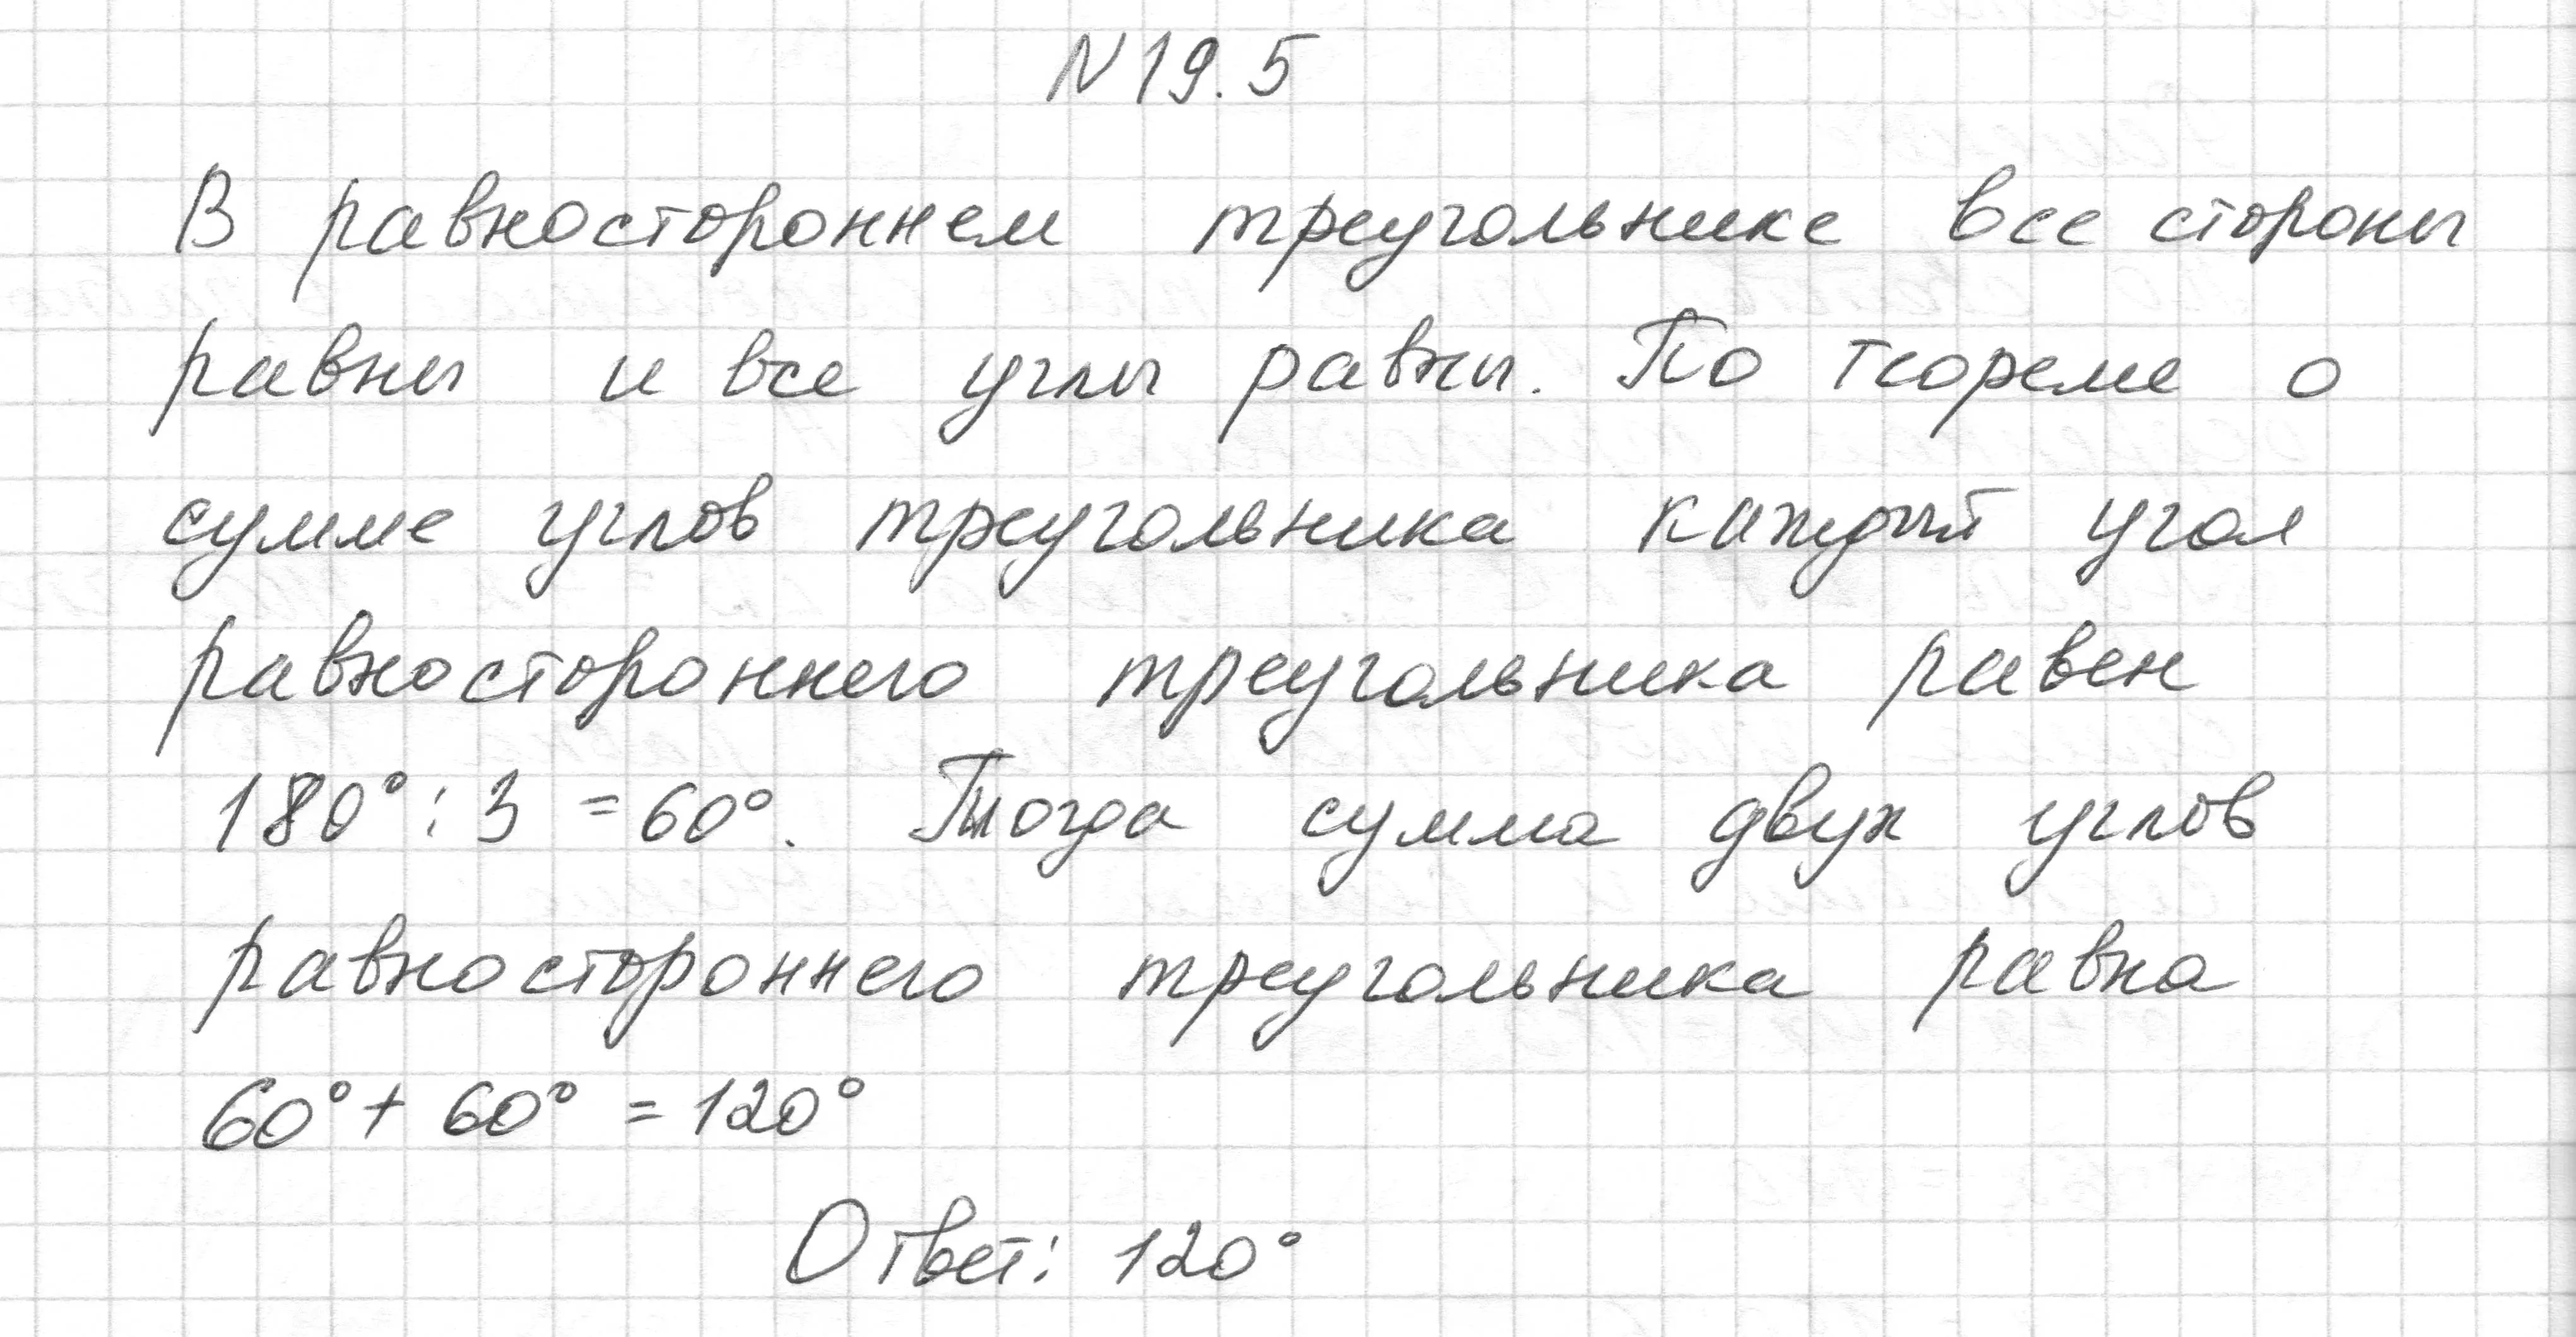 N 19.5
В равностороннем треугольнике все стороны
равны и все углы равны. По теореме о
сумме углов треугольника каждый угол
равностороннего треугольника равен
180° : 3 = 60°. Тогда сумма двух углов
равностороннего треугольника равна
60° + 60° = 120°
Ответ: 120°